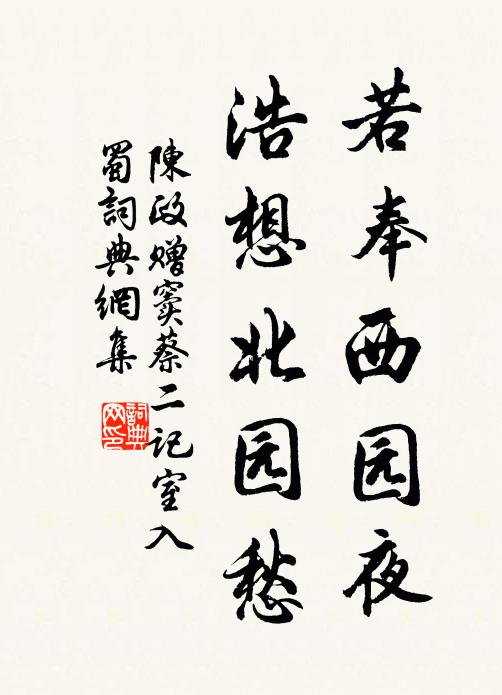 若奉西园夜
浩想北园愁
陳政赠窦蔡二记室入
蜀詞典網集
詞典网印